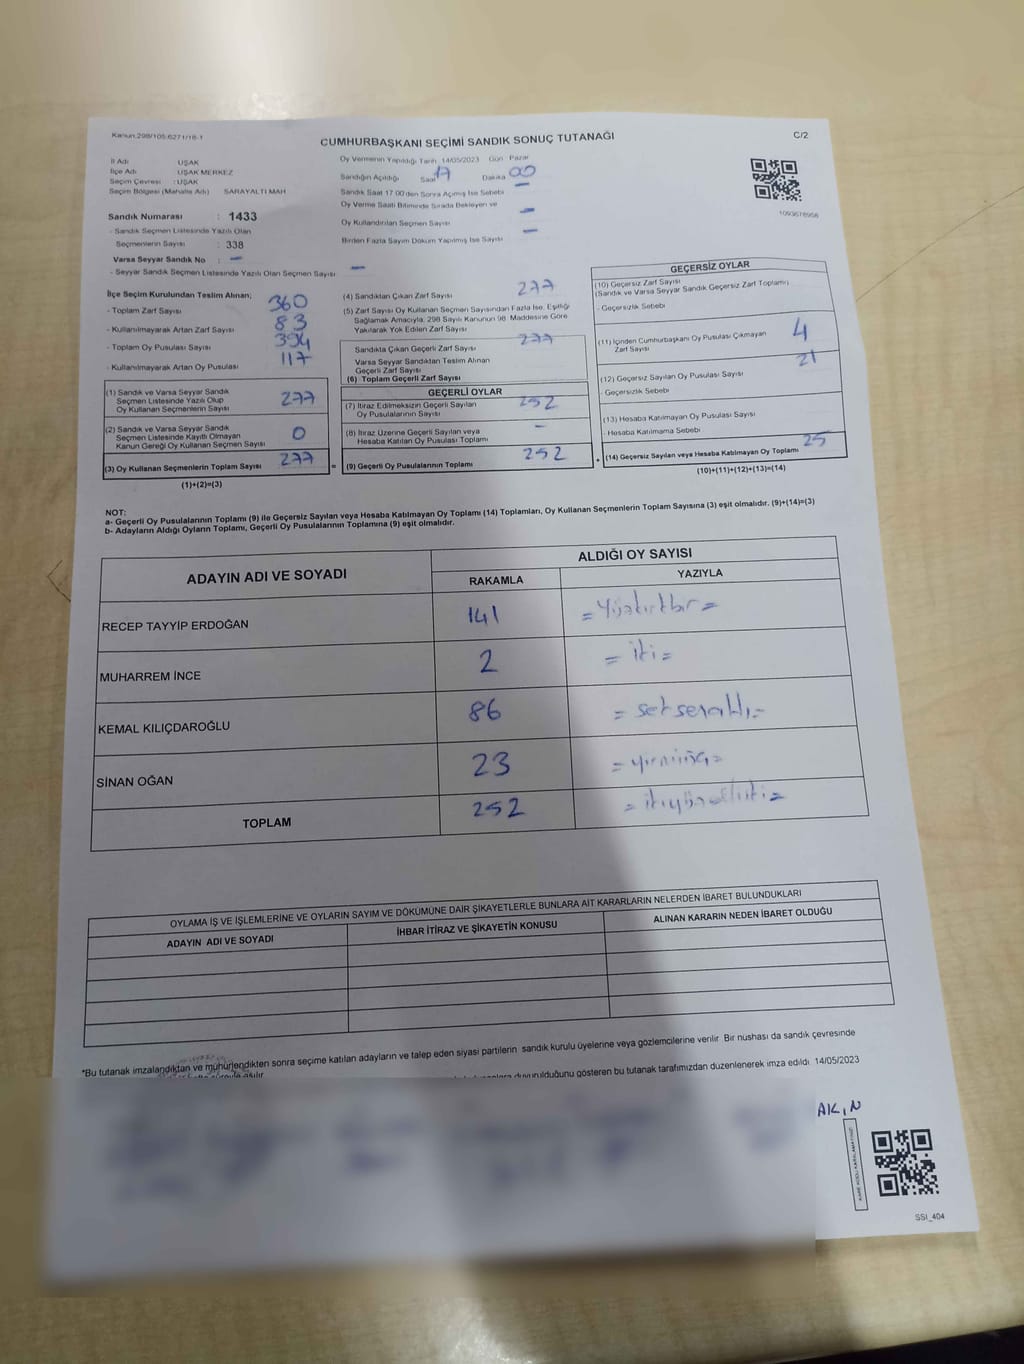 Kanun:298/105:6271/18-1
C/2
CUMHURBAŞKANI SEÇİMİ SANDIK SONUÇ TUTANAĞI
İl Adı : UŞAK
İlçe Adı : UŞAK MERKEZ
Seçim Çevresi : UŞAK
Seçim Bölgesi (Mahalle Adı) : SARAYALTI MAH
Sandık Numarası : 1433
- Sandık Seçmen Listesinde Yazılı Olan
Seçmenlerin Sayısı : 338
Varsa Seyyar Sandık No : -
- Seyyar Sandık Seçmen Listesinde Yazılı Olan Seçmen Sayısı -
Oy Vermenin Yapıldığı Tarih 14/05/2023 Gün Pazar
Sandığın Açıldığı Saat 17 Dakika 00
Sandık Saat 17:00'den Sonra Açımış İse Sebebi -
Oy Verme Saati Bitiminde Sırada Bekleyen ve
Oy Kullandırılan Seçmen Sayısı -
Birden Fazla Sayım Döküm Yapılmış İse Sayısı -
1093678958
İlçe Seçim Kurulundan Teslim Alınan;
- Toplam Zarf Sayısı 360
- Kullanılmayarak Artan Zarf Sayısı 83
- Toplam Oy Pusulası Sayısı 394
- Kullanılmayarak Artan Oy Pusulası 117
(1) Sandık ve Varsa Seyyar Sandık
Seçmen Listesinde Yazılı Olup
Oy Kullanan Seçmenlerin Sayısı 277
(2) Sandık ve Varsa Seyyar Sandık
Seçmen Listesinde Kayıtlı Olmayan
Kanun Gereği Oy Kullanan Seçmen Sayısı 0
(3) Oy Kullanan Seçmenlerin Toplam Sayısı 277
(1)+(2)=(3)
(4) Sandıktan Çıkan Zarf Sayısı 277
(5) Zarf Sayısı Oy Kullanan Seçmen Sayısından Fazla İse, Eşitliği
Sağlamak Amacıyla; 298 Sayılı Kanunun 98. Maddesine Göre
Yakılarak Yok Edilen Zarf Sayısı
Sandıkta Çıkan Geçerli Zarf Sayısı 277
Varsa Seyyar Sandıktan Teslim Alınan
Geçerli Zarf Sayısı
(6) Toplam Geçerli Zarf Sayısı
GEÇERLİ OYLAR
(7) İtiraz Edilmeksizin Geçerli Sayılan
Oy Pusulalarının Sayısı 252
(8) İtiraz Üzerine Geçerli Sayılan veya
Hesaba Katılan Oy Pusulası Toplamı -
= (9) Geçerli Oy Pusulalarının Toplamı 252
GEÇERSİZ OYLAR
(10) Geçersiz Zarf Sayısı
(Sandık ve Varsa Seyyar Sandık Geçersiz Zarf Toplamı)
- Geçersizlik Sebebi
(11) İçinden Cumhurbaşkanı Oy Pusulası Çıkmayan
Zarf Sayısı 4
(12) Geçersiz Sayılan Oy Pusulası Sayısı 21
- Geçersizlik Sebebi
(13) Hesaba Katılmayan Oy Pusulası Sayısı
- Hesaba Katılmama Sebebi
+ (14) Geçersiz Sayılan veya Hesaba Katılmayan Oy Toplamı 25
(10)+(11)+(12)+(13)=(14)
NOT:
a- Geçerli Oy Pusulalarının Toplamı (9) ile Geçersiz Sayılan veya Hesaba Katılmayan Oy Toplamı (14) Toplamları, Oy Kullanan Seçmenlerin Toplam Sayısına (3) eşit olmalıdır. (9)+(14)=(3)
b- Adayların Aldığı Oyların Toplamı, Geçerli Oy Pusulalarının Toplamına (9) eşit olmalıdır.
ADAYIN ADI VE SOYADI
ALDIĞI OY SAYISI
RAKAMLA YAZIYLA
RECEP TAYYİP ERDOĞAN 141 =Yüzkırkbir=
MUHARREM İNCE 2 =iki=
KEMAL KILIÇDAROĞLU 86 =seksenaltı=
SİNAN OĞAN 23 =yirmiüç=
TOPLAM 252 =ikiyüzelliiki=
OYLAMA İŞ VE İŞLEMLERİNE VE OYLARIN SAYIM VE DÖKÜMÜNE DAİR ŞİKAYETLERLE BUNLARA AİT KARARLARIN NELERDEN İBARET BULUNDUKLARI
ADAYIN ADI VE SOYADI İHBAR İTİRAZ VE ŞİKAYETİN KONUSU ALINAN KARARIN NEDEN İBARET OLDUĞU
*Bu tutanak imzalandıktan ve mühürlendikten sonra seçime katılan adayların ve talep eden siyasi partilerin sandık kurulu üyelerine veya gözlemcilerine verilir. Bir nüshası da sandık çevresinde
duyurulduğunu gösteren bu tutanak tarafımızdan düzenlenerek imza edildi. 14/05/2023
AK,N
KARE KODU KARALAMAYINIZ!
SSI_404